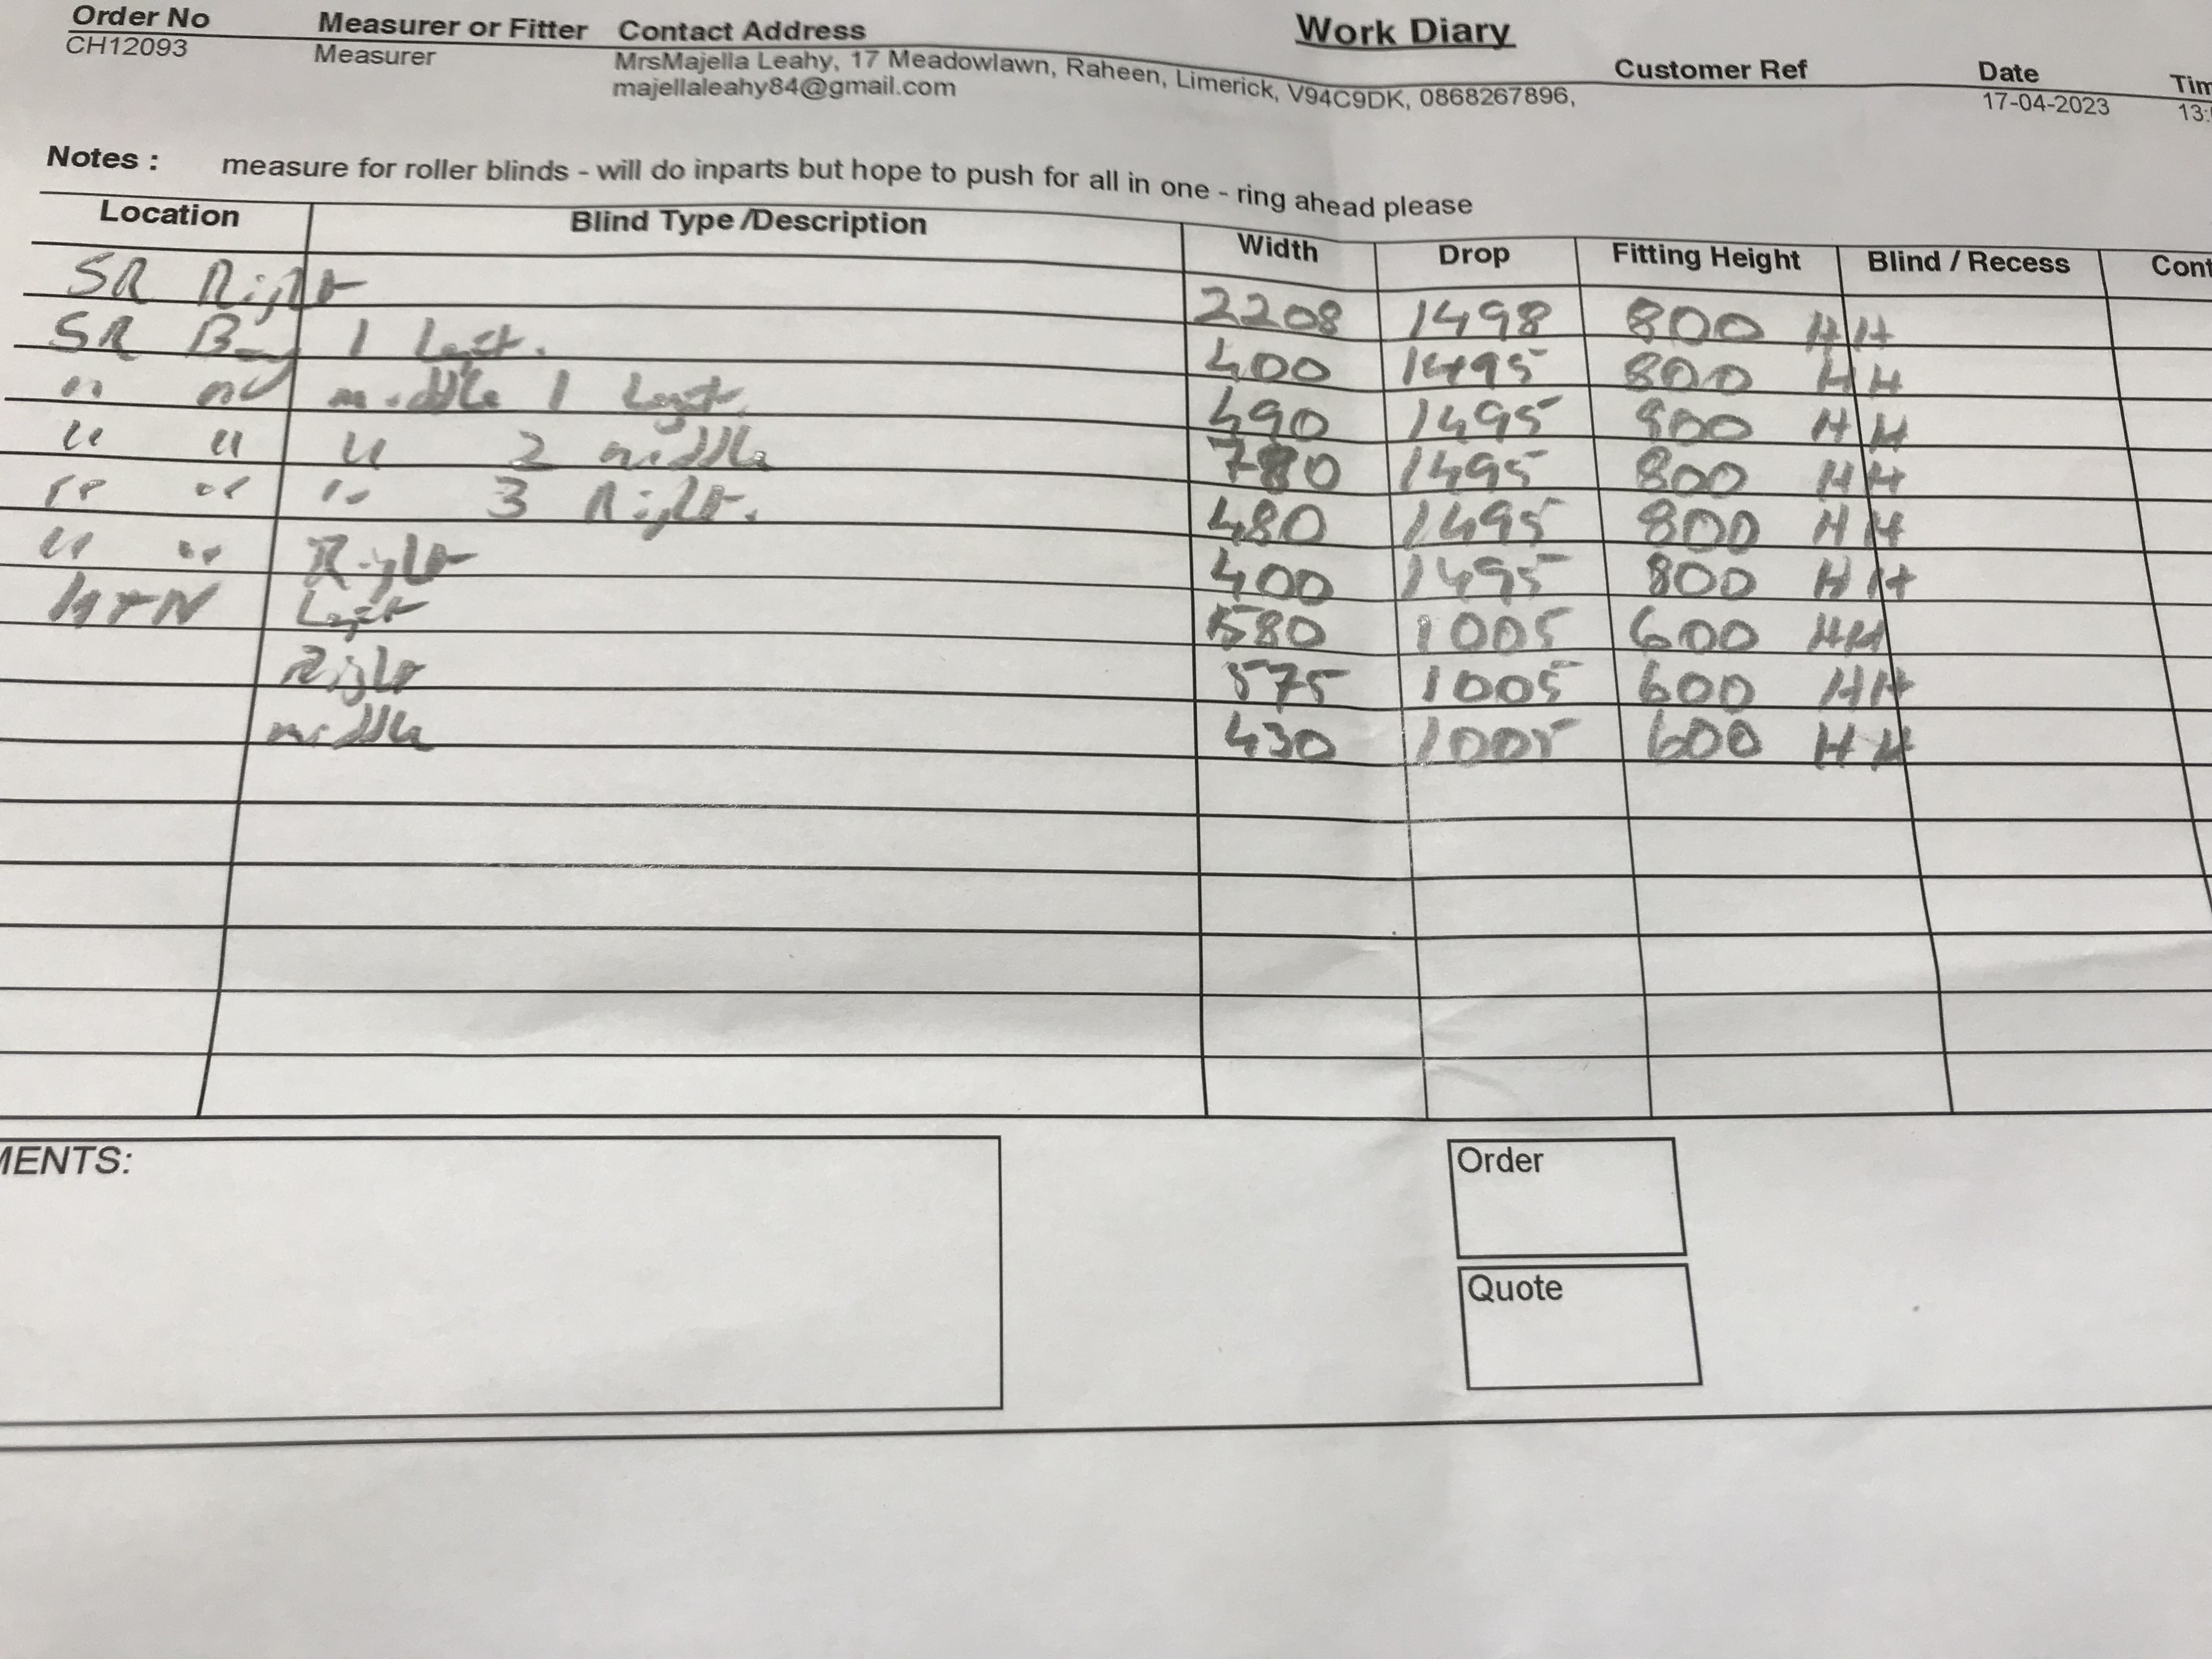 Work Diary
Order No Measurer or Fitter Contact Address Customer Ref Date Tim
CH12093 Measurer MrsMajella Leahy, 17 Meadowlawn, Raheen, Limerick, V94C9DK, 0868267896, 17-04-2023 13:
majellaleahy84@gmail.com
Notes : measure for roller blinds - will do inparts but hope to push for all in one - ring ahead please
Location Blind Type /Description Width Drop Fitting Height Blind / Recess Cont
SR Right 2208 1498 800 HH
SR Bay 1 Left. 400 1495 800 HH
" " middle 1 Left. 490 1495 800 HH
" " " 2 middle 780 1495 800 HH
" " " 3 Right. 480 1495 800 HH
" " Right 400 1495 800 HH
Left 580 1005 600 HH
Right 575 1005 600 HH
middle 430 1005 600 HH
MENTS:
Order
Quote